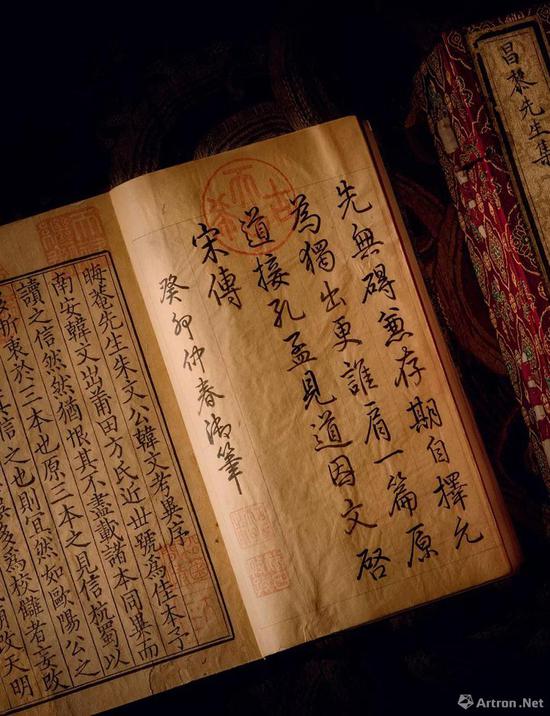 昌黎先生集
古希天子
先無碍兼存期自擇元
為獨出更誰肩一篇原
道接孔孟見道因文啓
宋傳
癸卯仲春御筆
晦菴先生朱文公韓文考異序
南安韓文出莆田方氏近世號為佳本予
讀之信然然猶恨其不盡載諸本同異而
折衷於三本也原三本之見信杭蜀以
其信之也則宜然如歐陽公之
多為校讎者妄改
改天明
Artron.Net